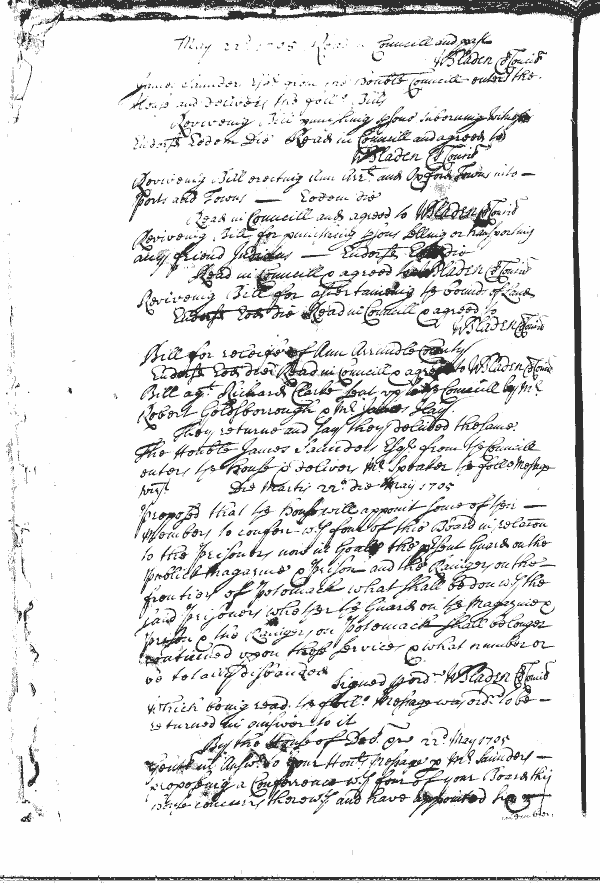 May 22d 1705 Read in Councill and past
WBladen Cl Concil
James Saunders Esqr from the Honoble Councill enters the
House and delivers the follo: Bills
Revivering Bill punishing psons suborning Witnesses
Endorst Eodem Die Read in Councill and agreed to
WBladen Cl Concil
Revivering Bill erecting Ann Arrl and Oxford Towns into —
ports and Towns — Eodem die
Read in Councill and agreed to WBladen Cl Concil
Revivering Bill for punishing psons selling or transporting
any friend Indians — Endorst Eod die
Read in Councill & agreed to WBladen Cl Concil
Revivering Bill for ascertaineing the bounds of land
Endorst Eod die Read in Councill & agreed to
WBladen Cl Concil
Bill for receipt of Ann Arrundle County
Endorst Eod die Read in Councill & agreed to WBladen Cl Concil
Bill agt Richard Clarke sent up to the Councill by Mr
Robert Goldsborough & Mr Hay
They returne and say they delivered the same
The Honble James Saunders Esqr from the Councill
enters the house & delivers Mr Speaker the follo Message
vizt Die Martis 22o die May 1705
Proposed that the House will appoint some of their —
Members to confer wth four of this Board in relation
to the Prisoners now in Goale the psent Guard on the
publick Magazine & Prison and the Rangers on the —
frontiers of Potomack what shall be don wth the
said Prisoners whether the Guard on the Magazine &
prison & the Rangers on Potomack shall be longer
continued upon those services & what number or
be totally disbanded
Signed p ordr WBladen Cl Concil
Which being read the follo: Message was ordrd to be —
returned in answer to it
By the House of Del. 22d May 1705
Gentl in Answer to your Honrs Message p Mr Saunders —
proposeing a Conference wth four of your Board this
House concurrs therewth and have appointed
members